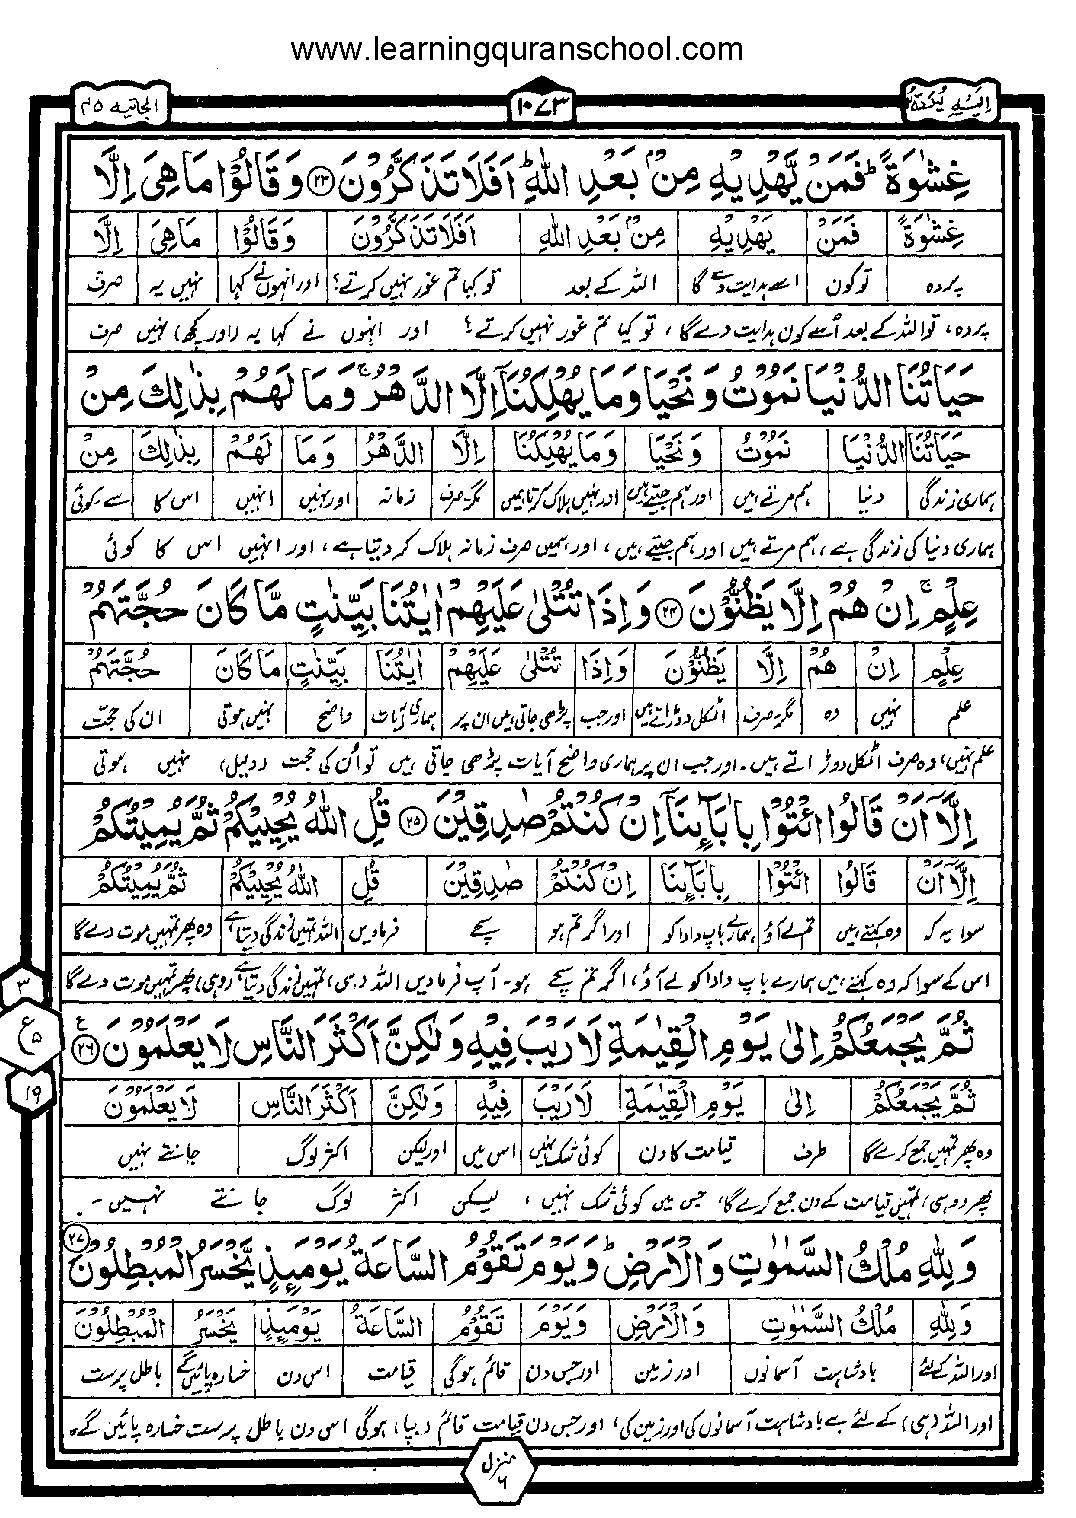 www.learningquranschool.com
الجاثیه ۴۵
۱۰۷۳
الیه یرد ۲۵
غِشٰوَةً ؕ فَمَنْ يَّهْدِيْهِ مِنْۢ بَعْدِ اللّٰهِ ؕ اَفَلَا تَذَكَّرُوْنَ ﴿۲۳﴾ وَقَالُوْا مَا هِىَ اِلَّا
غِشٰوَةً فَمَنْ يَهْدِيْهِ مِنْۢ بَعْدِ اللّٰهِ اَفَلَا تَذَكَّرُوْنَ وَقَالُوْا مَا هِىَ اِلَّا
پردہ تو کون اسے ہدایت دے گا اللہ کے بعد تو کیا تم غور نہیں کرتے؟ اور انہوں نے کہا نہیں یہ صرف
پردہ، تو اللہ کے بعد اُسے کون ہدایت دے گا، تو کیا تم غور نہیں کرتے؟ اور انہوں نے کہا یہ (اور کچھ) نہیں صرف
حَيَاتُنَا الدُّنْيَا نَمُوْتُ وَنَحْيَا وَمَا يُهْلِكُنَاۤ اِلَّا الدَّهْرُ ۚ وَمَا لَهُمْ بِذٰلِكَ مِنْ
حَيَاتُنَا الدُّنْيَا نَمُوْتُ وَنَحْيَا وَمَا يُهْلِكُنَا اِلَّا الدَّهْرُ وَمَا لَهُمْ بِذٰلِكَ مِنْ
ہماری زندگی دنیا ہم مرتے ہیں اور ہم جیتے ہیں اور نہیں ہلاک کرتا ہمیں مگر صرف زمانہ اور نہیں انہیں اس کا سے کوئی
ہماری دنیا کی زندگی ہے، ہم مرتے ہیں اور ہم جیتے ہیں، اور ہمیں صرف زمانہ ہلاک کر دیتا ہے، اور انہیں اس کا کوئی
عِلْمٍ ۚ اِنْ هُمْ اِلَّا يَظُنُّوْنَ ﴿۲۴﴾ وَاِذَا تُتْلٰى عَلَيْهِمْ اٰيٰتُنَا بَيِّنٰتٍ مَّا كَانَ حُجَّتَهُمْ
عِلْمٍ اِنْ هُمْ اِلَّا يَظُنُّوْنَ وَاِذَا تُتْلٰى عَلَيْهِمْ اٰيٰتُنَا بَيِّنٰتٍ مَا كَانَ حُجَّتَهُمْ
علم نہیں وہ مگر صرف اٹکل دوڑاتے ہیں اور جب پڑھی جاتی ہیں ان پر ہماری آیات واضح نہیں ہوتی ان کی حجت
علم نہیں، وہ صرف اٹکل دوڑاتے ہیں۔ اور جب ان پر ہماری واضح آیات پڑھی جاتی ہیں تو اُن کی حجت (دلیل) نہیں ہوتی
اِلَّاۤ اَنْ قَالُوا ائْتُوْا بِاٰبَآئِنَاۤ اِنْ كُنْتُمْ صٰدِقِيْنَ ﴿۲۵﴾ قُلِ اللّٰهُ يُحْيِيْكُمْ ثُمَّ يُمِيْتُكُمْ
اِلَّاۤ اَنْ قَالُوا ائْتُوْا بِاٰبَآئِنَا اِنْ كُنْتُمْ صٰدِقِيْنَ قُلِ اللّٰهُ يُحْيِيْكُمْ ثُمَّ يُمِيْتُكُمْ
سوا یہ کہ وہ کہتے ہیں تم لے آؤ ہمارے باپ دادا کو اور اگر تم ہو سچے فرمادیں اللہ تمہیں زندگی دیتا ہے وہ پھر تمہیں موت دے گا
اس کے سوا کہ وہ کہتے ہیں ہمارے باپ دادا کو لے آؤ، اگر تم سچے ہو۔ آپ فرمادیں اللہ (ہی) تمہیں زندگی دیتا ہے (وہی) پھر تمہیں موت دے گا
ثُمَّ يَجْمَعُكُمْ اِلٰى يَوْمِ الْقِيٰمَةِ لَا رَيْبَ فِيْهِ وَلٰكِنَّ اَكْثَرَ النَّاسِ لَا يَعْلَمُوْنَ ﴿۲۶﴾ ع
۳
ع ۵
۱۹
ثُمَّ يَجْمَعُكُمْ اِلٰى يَوْمِ الْقِيٰمَةِ لَا رَيْبَ فِيْهِ وَلٰكِنَّ اَكْثَرَ النَّاسِ لَا يَعْلَمُوْنَ
وہ پھر تمہیں جمع کرے گا طرف قیامت کا دن کوئی شک نہیں اس میں اور لیکن اکثر لوگ جانتے نہیں
پھر (وہی) تمہیں قیامت کے دن جمع کرے گا، جس میں کوئی شک نہیں، لیکن اکثر لوگ جانتے نہیں۔
وَلِلّٰهِ مُلْكُ السَّمٰوٰتِ وَالْاَرْضِ ؕ وَيَوْمَ تَقُوْمُ السَّاعَةُ يَوْمَئِذٍ يَّخْسَرُ الْمُبْطِلُوْنَ ﴿۲۷﴾
وَلِلّٰهِ مُلْكُ السَّمٰوٰتِ وَالْاَرْضِ وَيَوْمَ تَقُوْمُ السَّاعَةُ يَوْمَئِذٍ يَخْسَرُ الْمُبْطِلُوْنَ
اور اللہ کے لئے بادشاہت آسمانوں اور زمین اور جس دن قائم ہوگی قیامت اس دن خسارہ پائیں گے باطل پرست
اور اللہ (ہی) کے لئے ہے بادشاہت آسمانوں کی اور زمین کی، اور جس دن قیامت قائم (بپا) ہوگی اسی دن باطل پرست خسارہ پائیں گے۔
منزل ۶